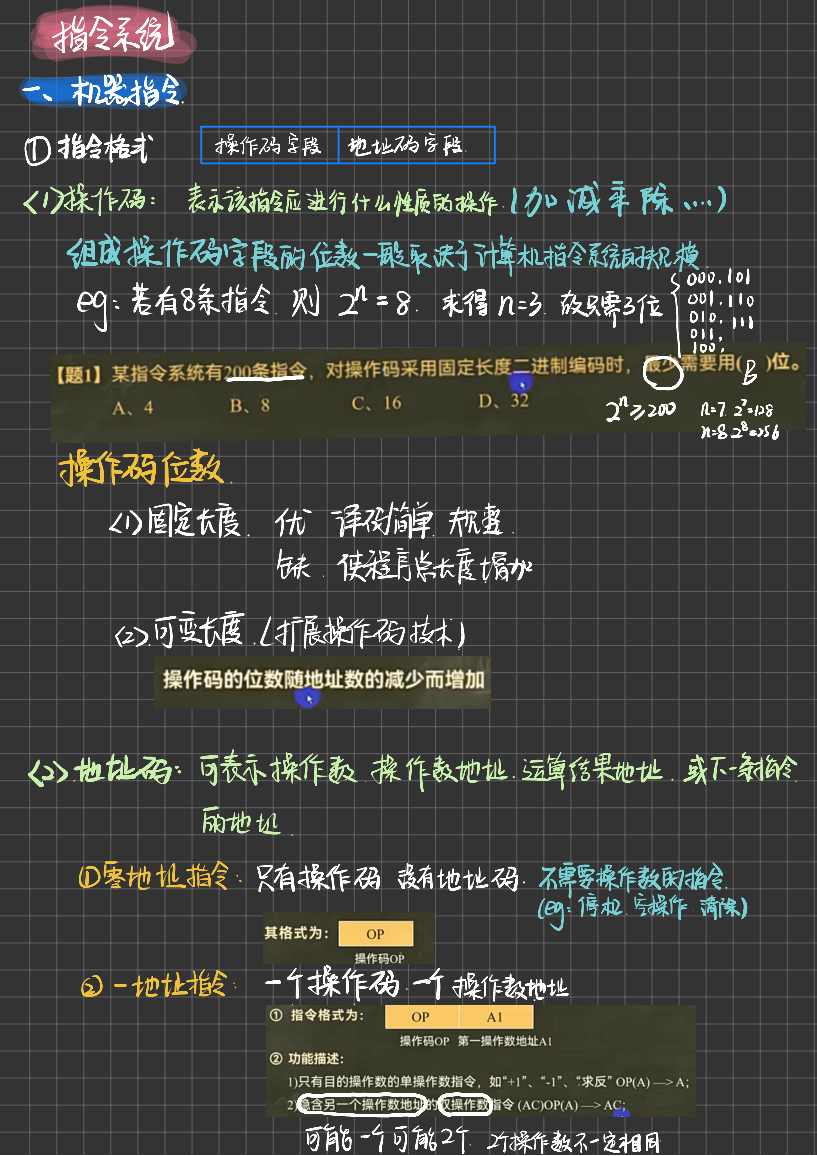 指令系统
一、机器指令.
① 指令格式 操作码字段 地址码字段.
(1)操作码： 表示该指令应进行什么性质的操作.(加 减 乘 除 ....)
组成操作码字段的位数一般取决于计算机指令系统的规模.
eg: 若有8条指令. 则 2ⁿ = 8. 求得 n=3. 故只需3位
000. 101
001. 110
010. 111
011.
100.
【题1】某指令系统有200条指令，对操作码采用固定长度二进制编码时，最少需要用( B )位。
A、4 B、8 C、16 D、32
2ⁿ≥200 n=7. 2⁷=128
n=8. 2⁸=256
操作码位数.
(1)固定长度. 优 译码简单 规整.
缺. 使程序总长度增加
(2).可变长度.(扩展操作码技术)
操作码的位数随地址数的减少而增加
(2).地址码： 可表示操作数.操作数地址.运算结果地址.或下一条指令
的地址.
①零地址指令： 只有操作码 没有地址码. 不需要操作数的指令.
(eg: 停机.空操作.清除)
其格式为： OP
操作码OP
② 一地址指令： 一个操作码.一个操作数地址
① 指令格式为： OP A1
操作码OP 第一操作数地址A1
② 功能描述：
1)只有目的操作数的单操作数指令，如“+1”、“-1”、“求反” OP(A) —> A;
2)隐含另一个操作数地址的双操作数指令 (AC)OP(A) —> AC;
可能一个可能2个. 2个操作数不一定相同